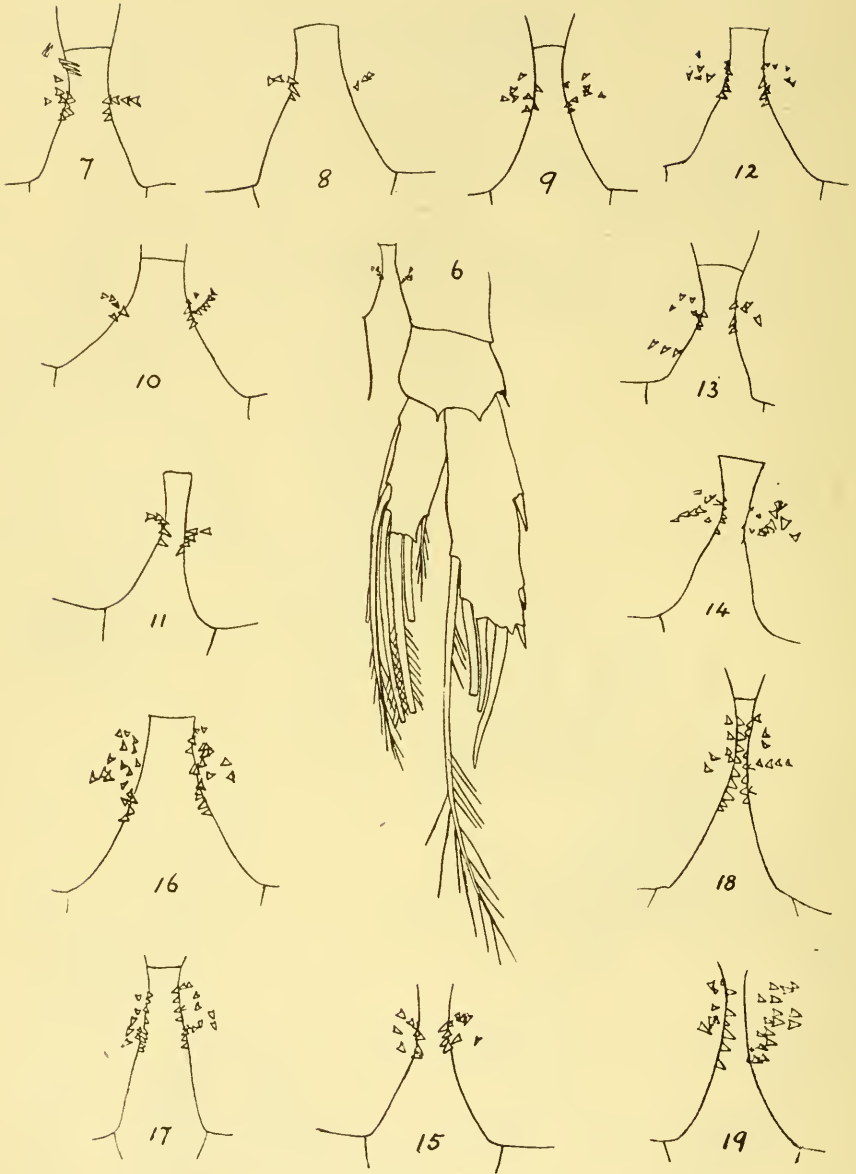 7
8
9
12
6
10
13
11
14
16
18
17
15
19